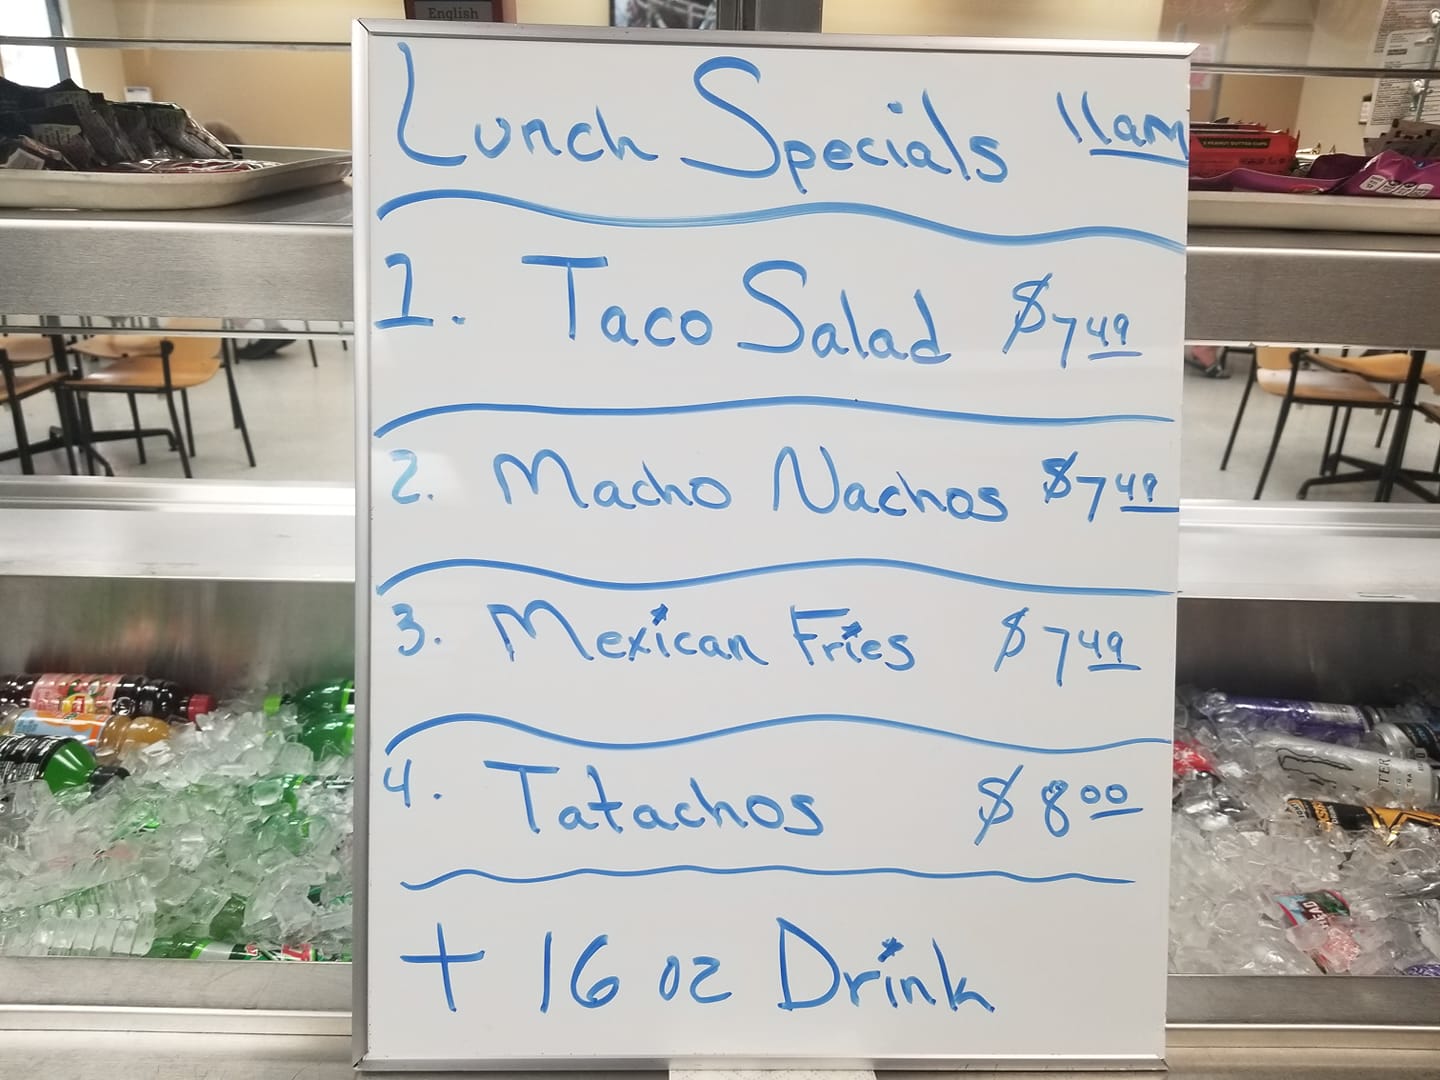 English
Lunch Specials 11am
1. Taco Salad $7.49
2. Macho Nachos $7.49
3. Mexican Fries $7.49
4. Tatachos $8.00
+ 16 oz Drink